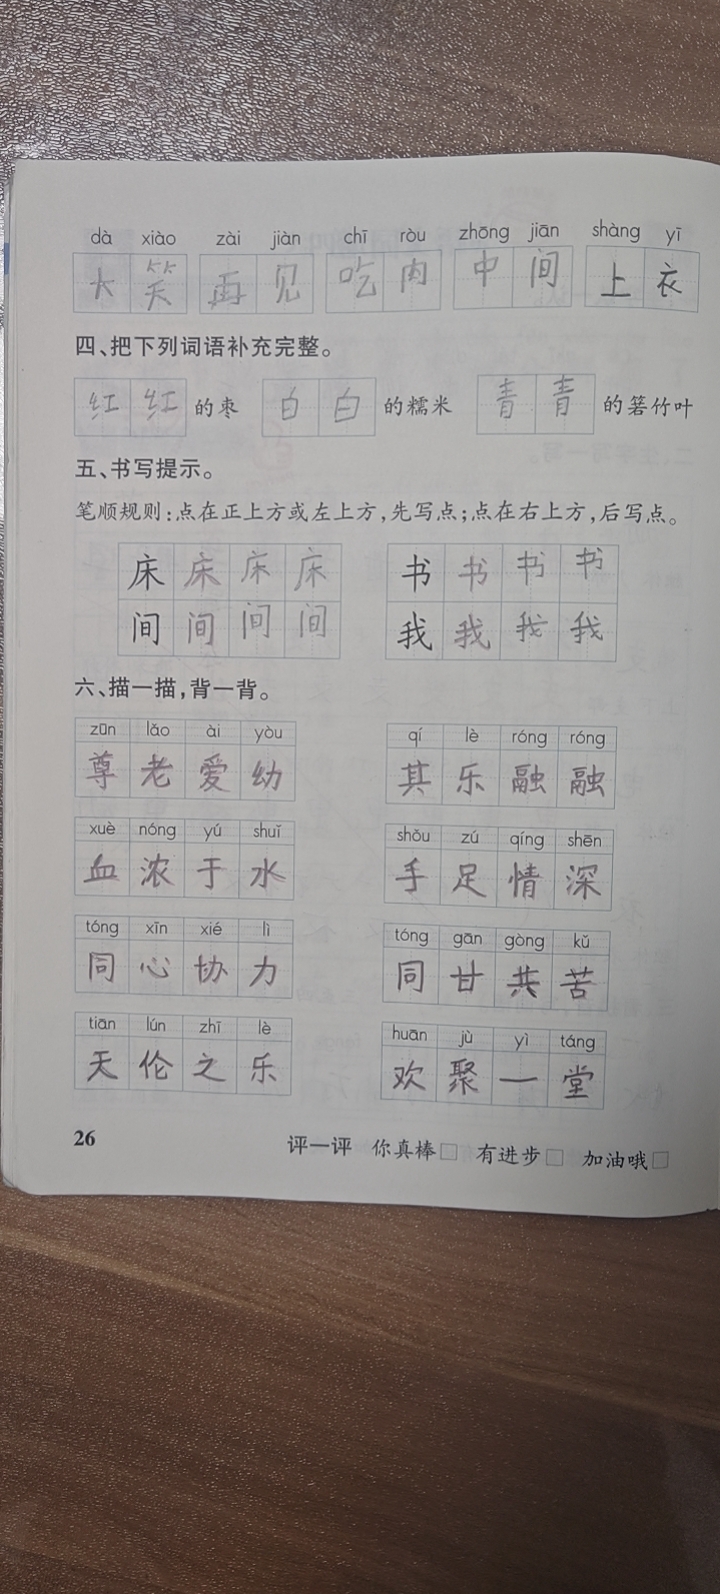 dà xiào zài jiàn chī ròu zhōng jiān shàng yī
大笑 再见 吃肉 中间 上衣
四、把下列词语补充完整。
红红的枣 白白的糯米 青青的箬竹叶
五、书写提示。
笔顺规则:点在正上方或左上方,先写点;点在右上方,后写点。
床床床床 书书书书
间间间间 我我我我
六、描一描,背一背。
zūn lǎo ài yòu qí lè róng róng
尊老爱幼 其乐融融
xuè nóng yú shuǐ shǒu zú qíng shēn
血浓于水 手足情深
tóng xīn xié lì tóng gān gòng kǔ
同心协力 同甘共苦
tiān lún zhī lè huān jù yì táng
天伦之乐 欢聚一堂
26 评一评 你真棒□ 有进步□ 加油哦□